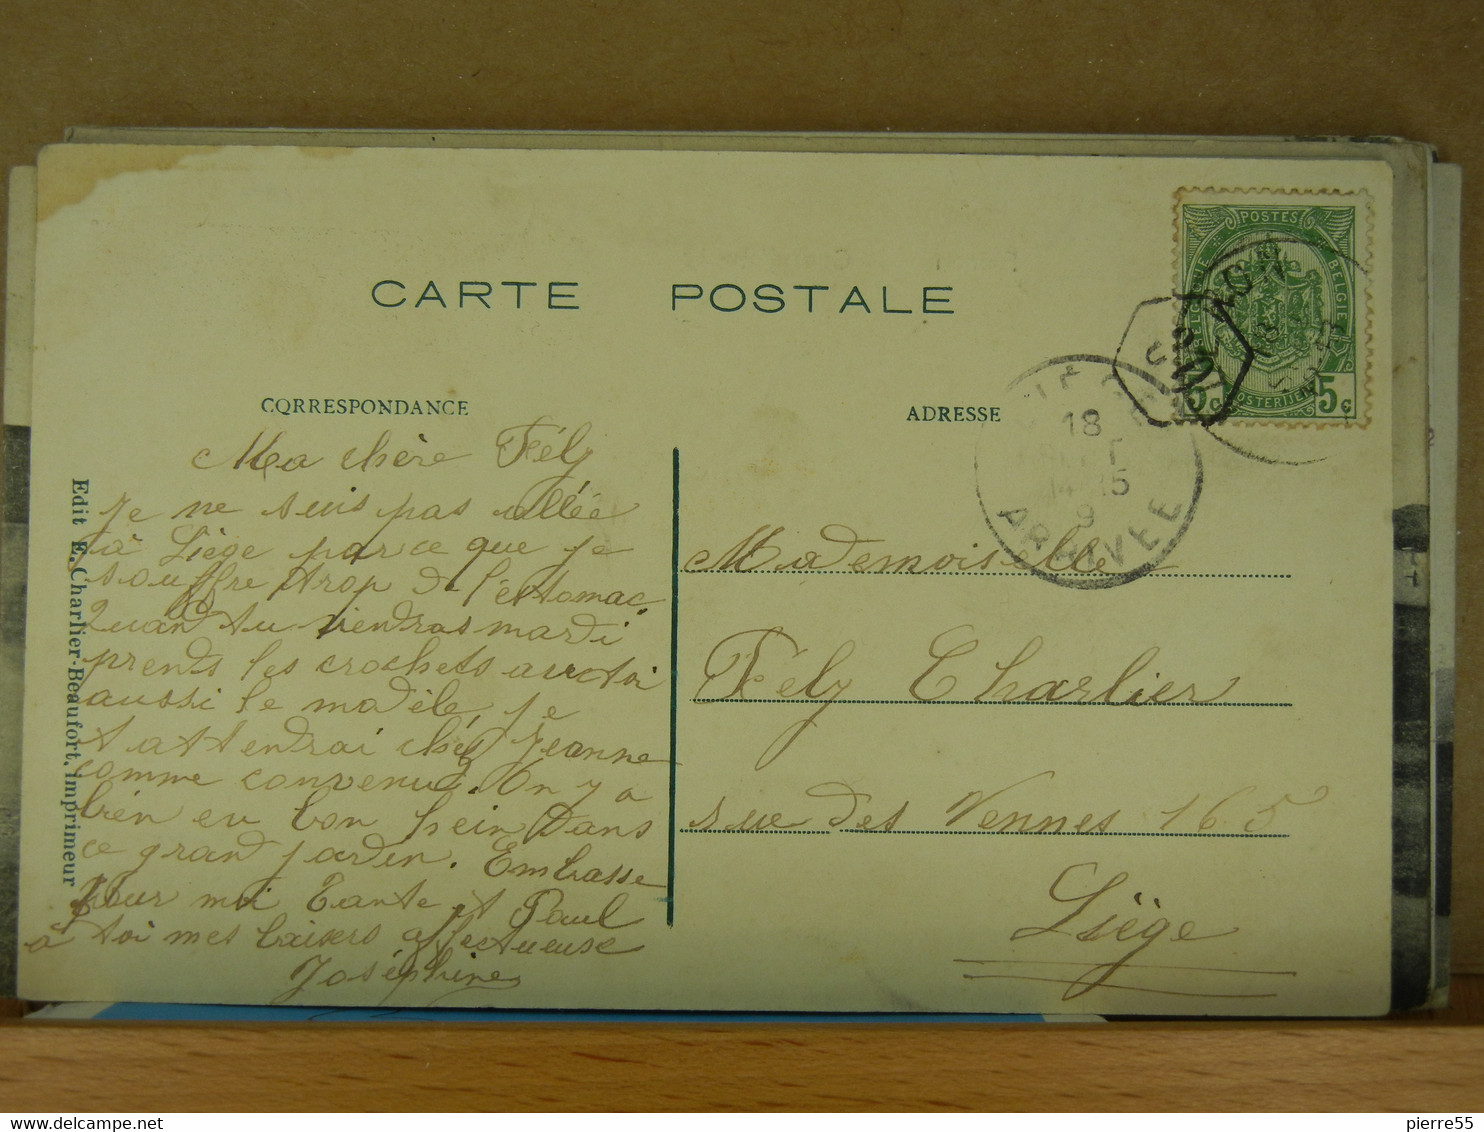 CARTE POSTALE
CORRESPONDANCE
ADRESSE
POSTES
BELGIQUE
BELGIE
POSTERIJEN
5c 5c
LIÉGE
18
SEPT
14-15
9
ARRIVÉE
Edit E. Charlier-Beaufort, imprimeur
Ma chère Fély
Je ne suis pas allée
à Liège parce que je
souffre trop de l'éstomac.
Quand tu viendras mardi
prends les crochets avec toi
aussi le modèle, je
t'attendrai chez Jeanne
comme convenu. On y a
bien eu bon hein dans
ce grand jardin. Embrasse
pour moi Tante et Paul
à toi mes baisers affectueuse
Joséphine
Mademoiselle
Fély Charlier
rue des Vennes 165
Liège
pierre55